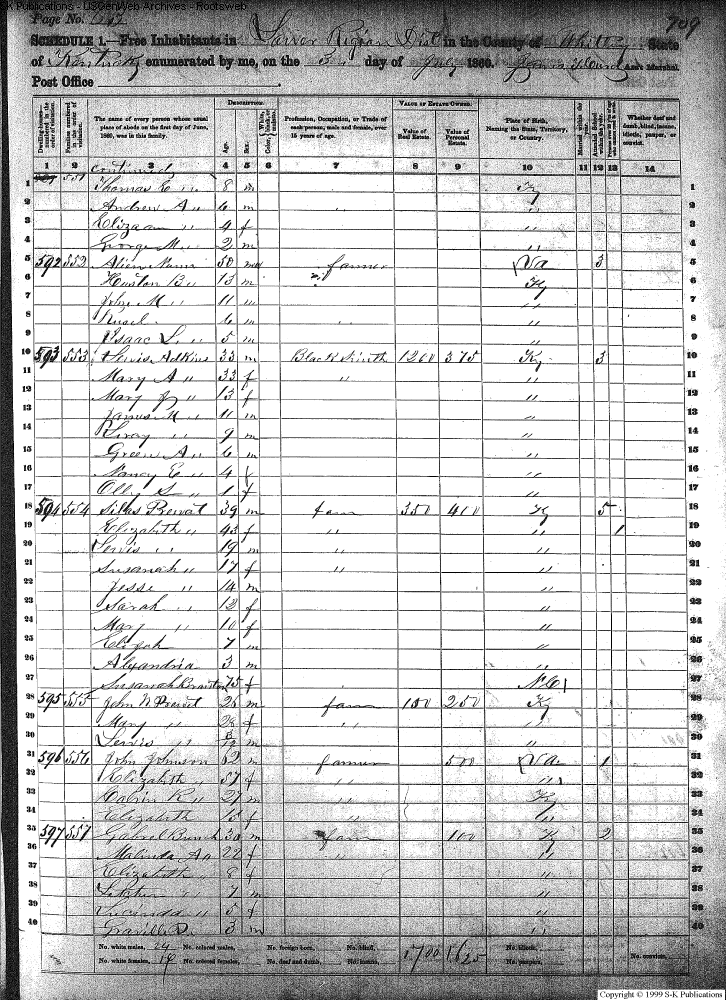 S-K Publications - USGenWeb Archives - Rootsweb
Page No. 709
SCHEDULE 1.—Free Inhabitants in Dist in the County of Whitley State
of Kentucky enumerated by me, on the day of July 1860. Ass't Marshal.
Post Office
DESCRIPTION. VALUE OF ESTATE OWNED.
Dwelling-houses—numbered in the order of visitation. Families numbered in the order of visitation. The name of every person whose usual place of abode on the first day of June, 1860, was in this family. Age. Sex. Color, White, black, or mulatto. Profession, Occupation, or Trade of each person, male and female, over 15 years of age. Value of Real Estate. Value of Personal Estate. Place of Birth, Naming the State, Territory, or Country. Married within the year. Whether deaf and dumb, blind, insane, idiotic, pauper, or convict.
1 2 3 4 5 6 7 8 9 10 11 12 13 14
551 continued
1 Thomas E " 8 m Ky 1
2 Andrew A " 6 m " 2
3 Elizaan " 4 f " 3
4 George M " 2 m " 4
5 592 552 50 m farmer Va 3 5
6 Huston B " 13 m Ky 6
7 John M " 11 " " 7
8 6 m " 8
9 Isaac L " 5 m " 9
10 593 553 Lewis Adkins 33 m Black Smith 1200 375 Ky 3 10
11 Mary A " 33 f " " 11
12 Mary J " 13 f " 12
13 James M " 11 m " 13
14 Leroy " 9 m " 14
15 Green A " 6 m " 15
16 Nancy E " 4 f " 16
17 Olly S " 1 f " 17
18 594 554 Silas Prewat 39 m farm 350 400 Ky 5 18
19 Elizabeth " 43 f " " 1 19
20 Lewis " 19 m " " 20
21 Susanah " 17 f " " 21
22 Jesse " 14 m " 22
23 Sarah " 12 f " 23
24 Mary " 10 f " 24
25 Elijah 7 m " 25
26 Alexandria 3 m " 26
27 Susanah 75 f N C 27
28 595 555 John N Prewet 26 m farm 100 250 Ky 28
29 Mary " f " " 29
30 Lewis " m " 30
31 596 556 John Johnson 62 m farmer 500 Va 1 31
32 Elizabeth " 57 f " " 32
33 Calvin R " 27 m " Ky 33
34 Elizabeth f " " 34
35 597 557 Gabriel Bunch 30 m farm 100 Ky 2 35
36 Malinda An 22 f " " 36
37 Elizabeth 8 f " 37
38 7 m " 38
39 Lucinda " 5 f " 39
40 3 m " 40
No. white males, 24 No. colored males, No. foreign born, No. blind, 1700 1625 No. idiotic,
No. white females, No. colored females, No. deaf and dumb, No. insane, No. paupers, No. convicts,
Copyright © 1999 S-K Publications